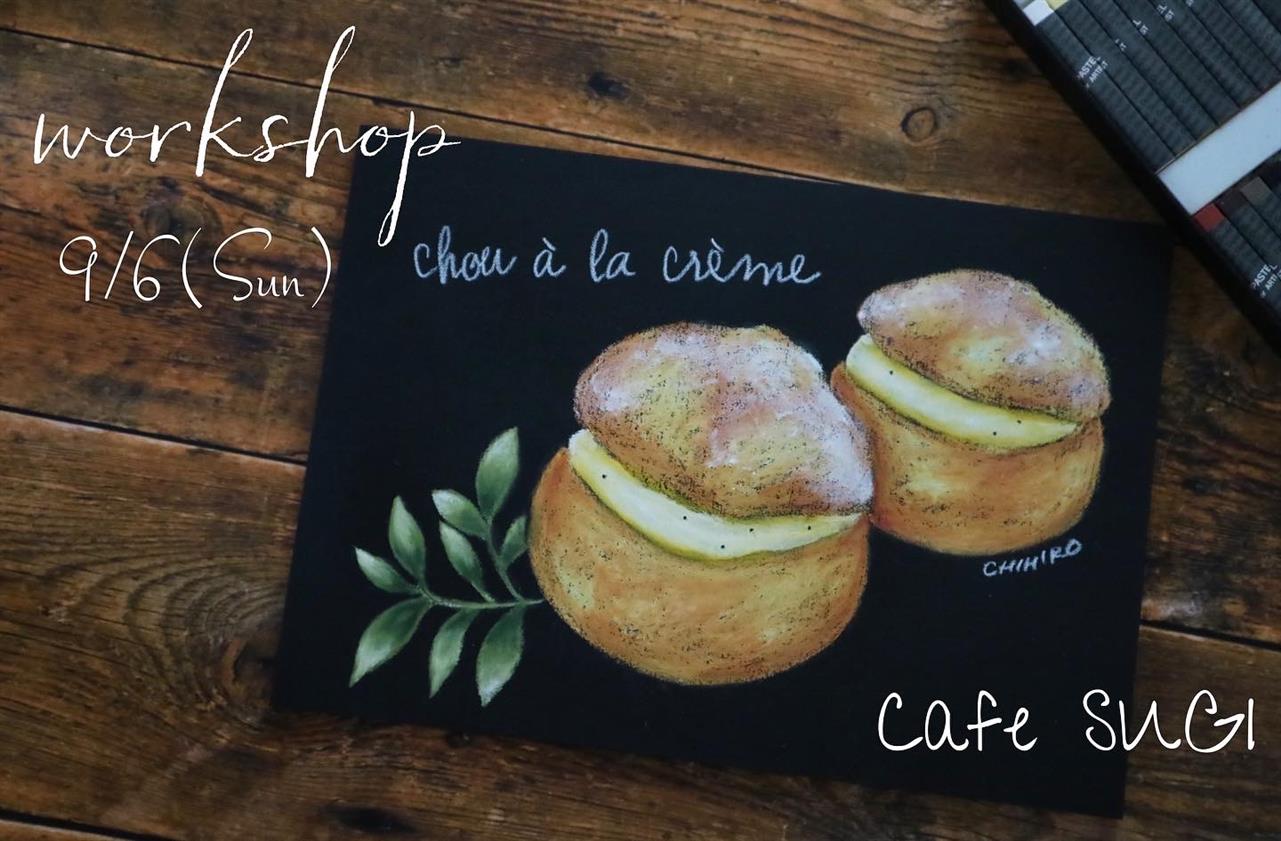 workshop
9/6(Sun)
chou à la crème
CHIHIRO
Cafe SUGI
PASTEL
PASTEL